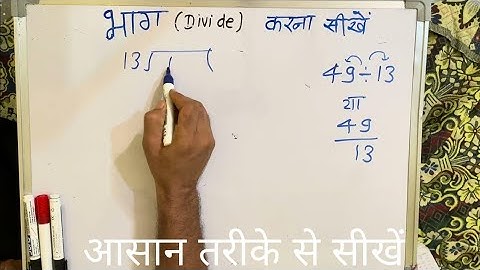 भाग (Divide) करना सीखें
13
49÷13
या
49
13
आसान तरीके से सीखें